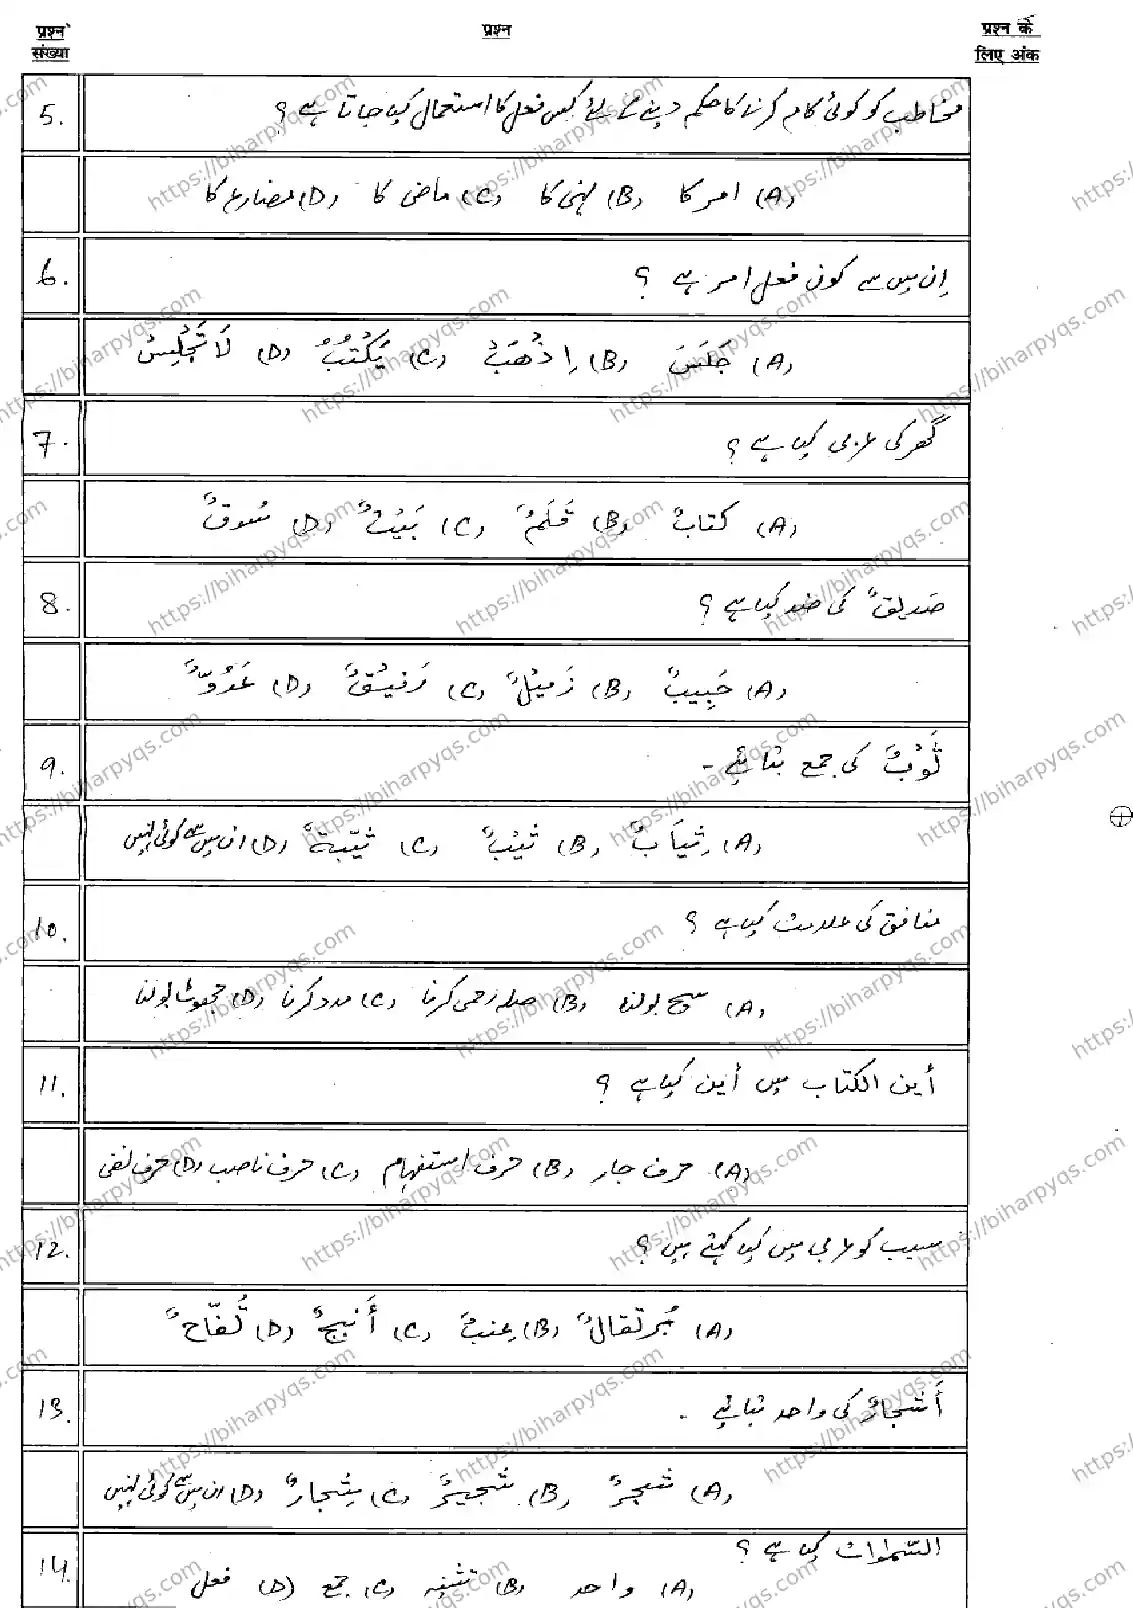 प्रश्न संख्या
प्रश्न
प्रश्न के लिए अंक
5. مخاطب کو کوئی کام کرنے کا حکم دینے کے لئے کس فعل کا استعمال کیا جاتا ہے ؟
(A) امر کا (B) نہی کا (C) ماضی کا (D) مضارع کا
6. اِن میں سے کون فعل امر ہے ؟
(A) جَلَسَ (B) اِذْهَبْ (C) يَكْتُبُ (D) لَا تَجْلِسْ
7. گھر کی عربی کیا ہے ؟
(A) كتابٌ (B) قَلَمٌ (C) بَيْتٌ (D) سُوقٌ
8. صَدِيقٌ کی ضد کیا ہے ؟
(A) حَبِيبٌ (B) زَمِيْلٌ (C) رَفِيْقٌ (D) عَدُوٌّ
9. ثَوْبٌ کی جمع بتائیے -
(A) ثِيَابٌ (B) ثَيْبٌ (C) ثيّبةٌ (D) ان میں سے کوئی نہیں
10. منافق کی علامت کیا ہے ؟
(A) سچ بولنا (B) صلہ رحمی کرنا (C) مدد کرنا (D) جھوٹ بولنا
11. أين الكتاب میں أين کیا ہے ؟
(A) حرف جار (B) حرف استفہام (C) حرف ناصب (D) حرف نفی
12. سیب کو عربی میں کیا کہتے ہیں ؟
(A) بُرتقالٌ (B) عِنبٌ (C) أَنبجٌ (D) تُفّاحٌ
13. أَشجارٌ کی واحد بتائیے -
(A) شَجرٌ (B) شُجيرٌ (C) شِجارٌ (D) ان میں سے کوئی نہیں
14. السَّمٰوات کیا ہے ؟
(A) واحد (B) تثنیہ (C) جمع (D) فعل
https://biharpyqs.com